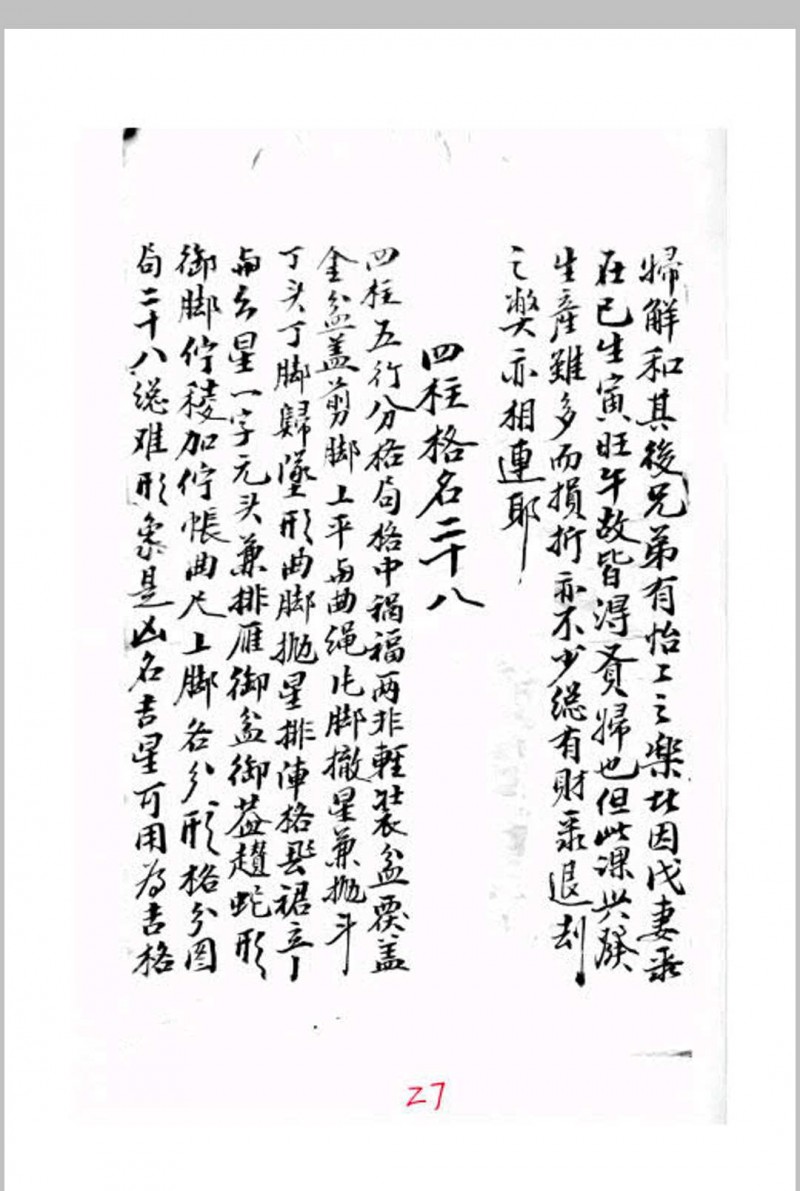 婦解和其後兄弟有怡工之樂此因戊妻乘
在巳生寅旺午故皆得賢婦也但此課共發
生產雖多而損折亦不少總有財乘退刦
之獘亦相連耶
四柱格名二十八
四柱五行分格局格中禍福兩非輕裝盆覆盖
金盆盖剪脚上平与曲绳 脚撤星兼抛斗
丁头丁脚歸墜形曲脚抛星排陣格 裙 
与 星一字元头兼排雁御盆御 趲蛇形
御脚佇稜加佇帳曲尺上脚各分形格分图
局二十八總难形象是凶名吉星可用为吉格
27